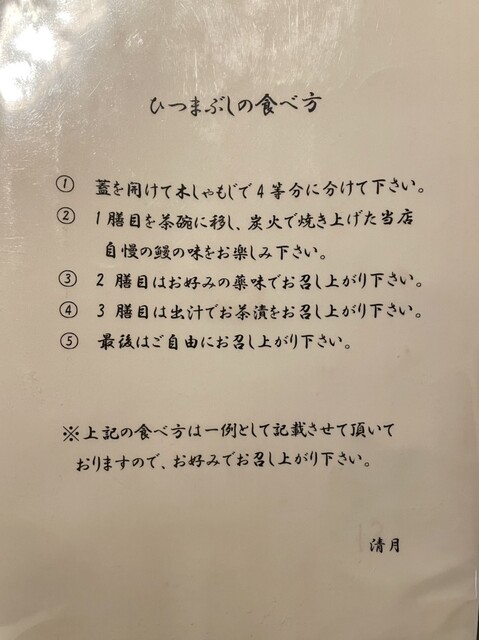 ひつまぶしの食べ方
① 蓋を開けて木しゃもじで4等分に分けて下さい。
② 1膳目を茶碗に移し、炭火で焼き上げた当店
自慢の鰻の味をお楽しみ下さい。
③ 2膳目はお好みの薬味でお召し上がり下さい。
④ 3膳目は出汁でお茶漬をお召し上がり下さい。
⑤ 最後はご自由にお召し上がり下さい。
※上記の食べ方は一例として記載させて頂いて
おりますので、お好みでお召し上がり下さい。
清月